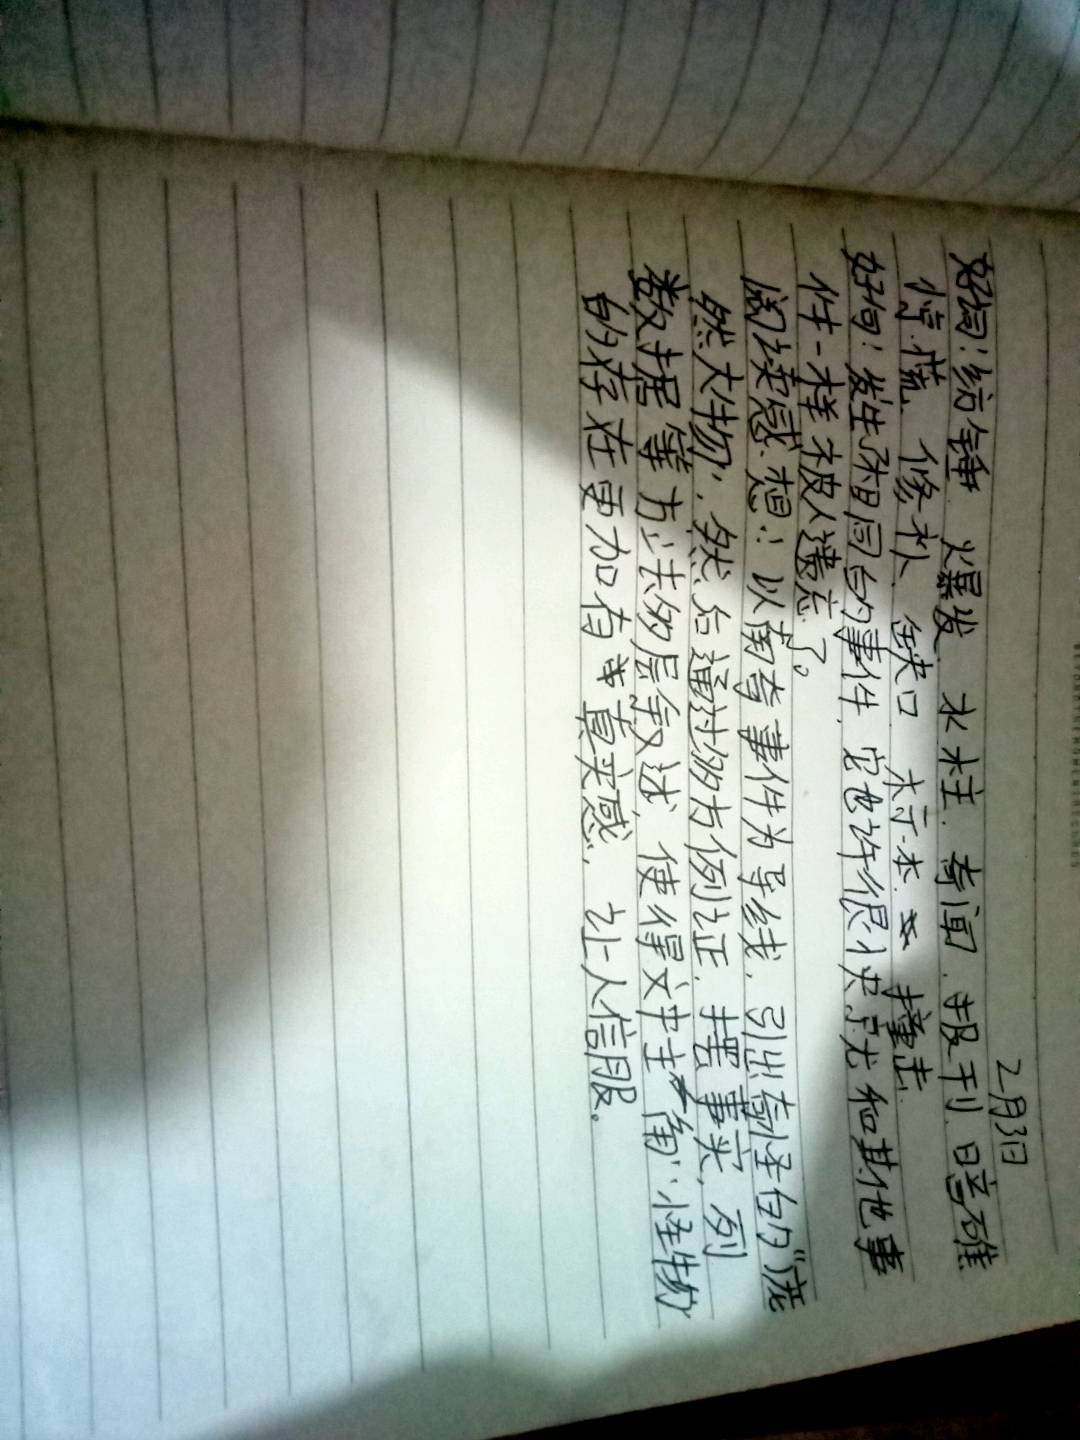 2月3日
好词:纺锤 爆发 水柱 奇闻 报刊 暗礁
惊慌 修补 缺口 标本 撞击
好句:发生相同的事件,它也许很快就和其他事
件一样被人遗忘了。
阅读感想:以离奇事件为导线,引出奇怪的“庞
然大物”,然后通过多方例证,摆事实,列
数据等方法的层层叙述,使得文中主角“怪物
的存在更加有真实感,让人信服。